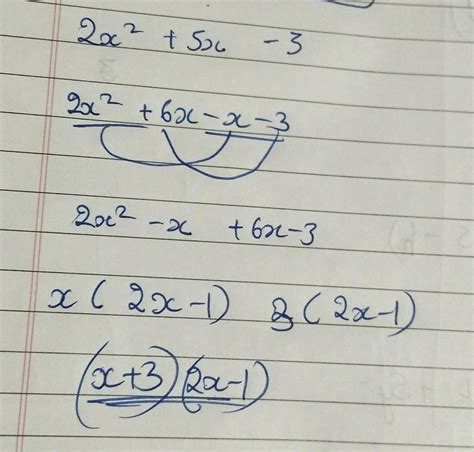 2x² + 5x - 3
2x² + 6x - x - 3
2x² - x + 6x - 3
x ( 2x - 1) 3 ( 2x - 1)
(x + 3) (2x - 1)